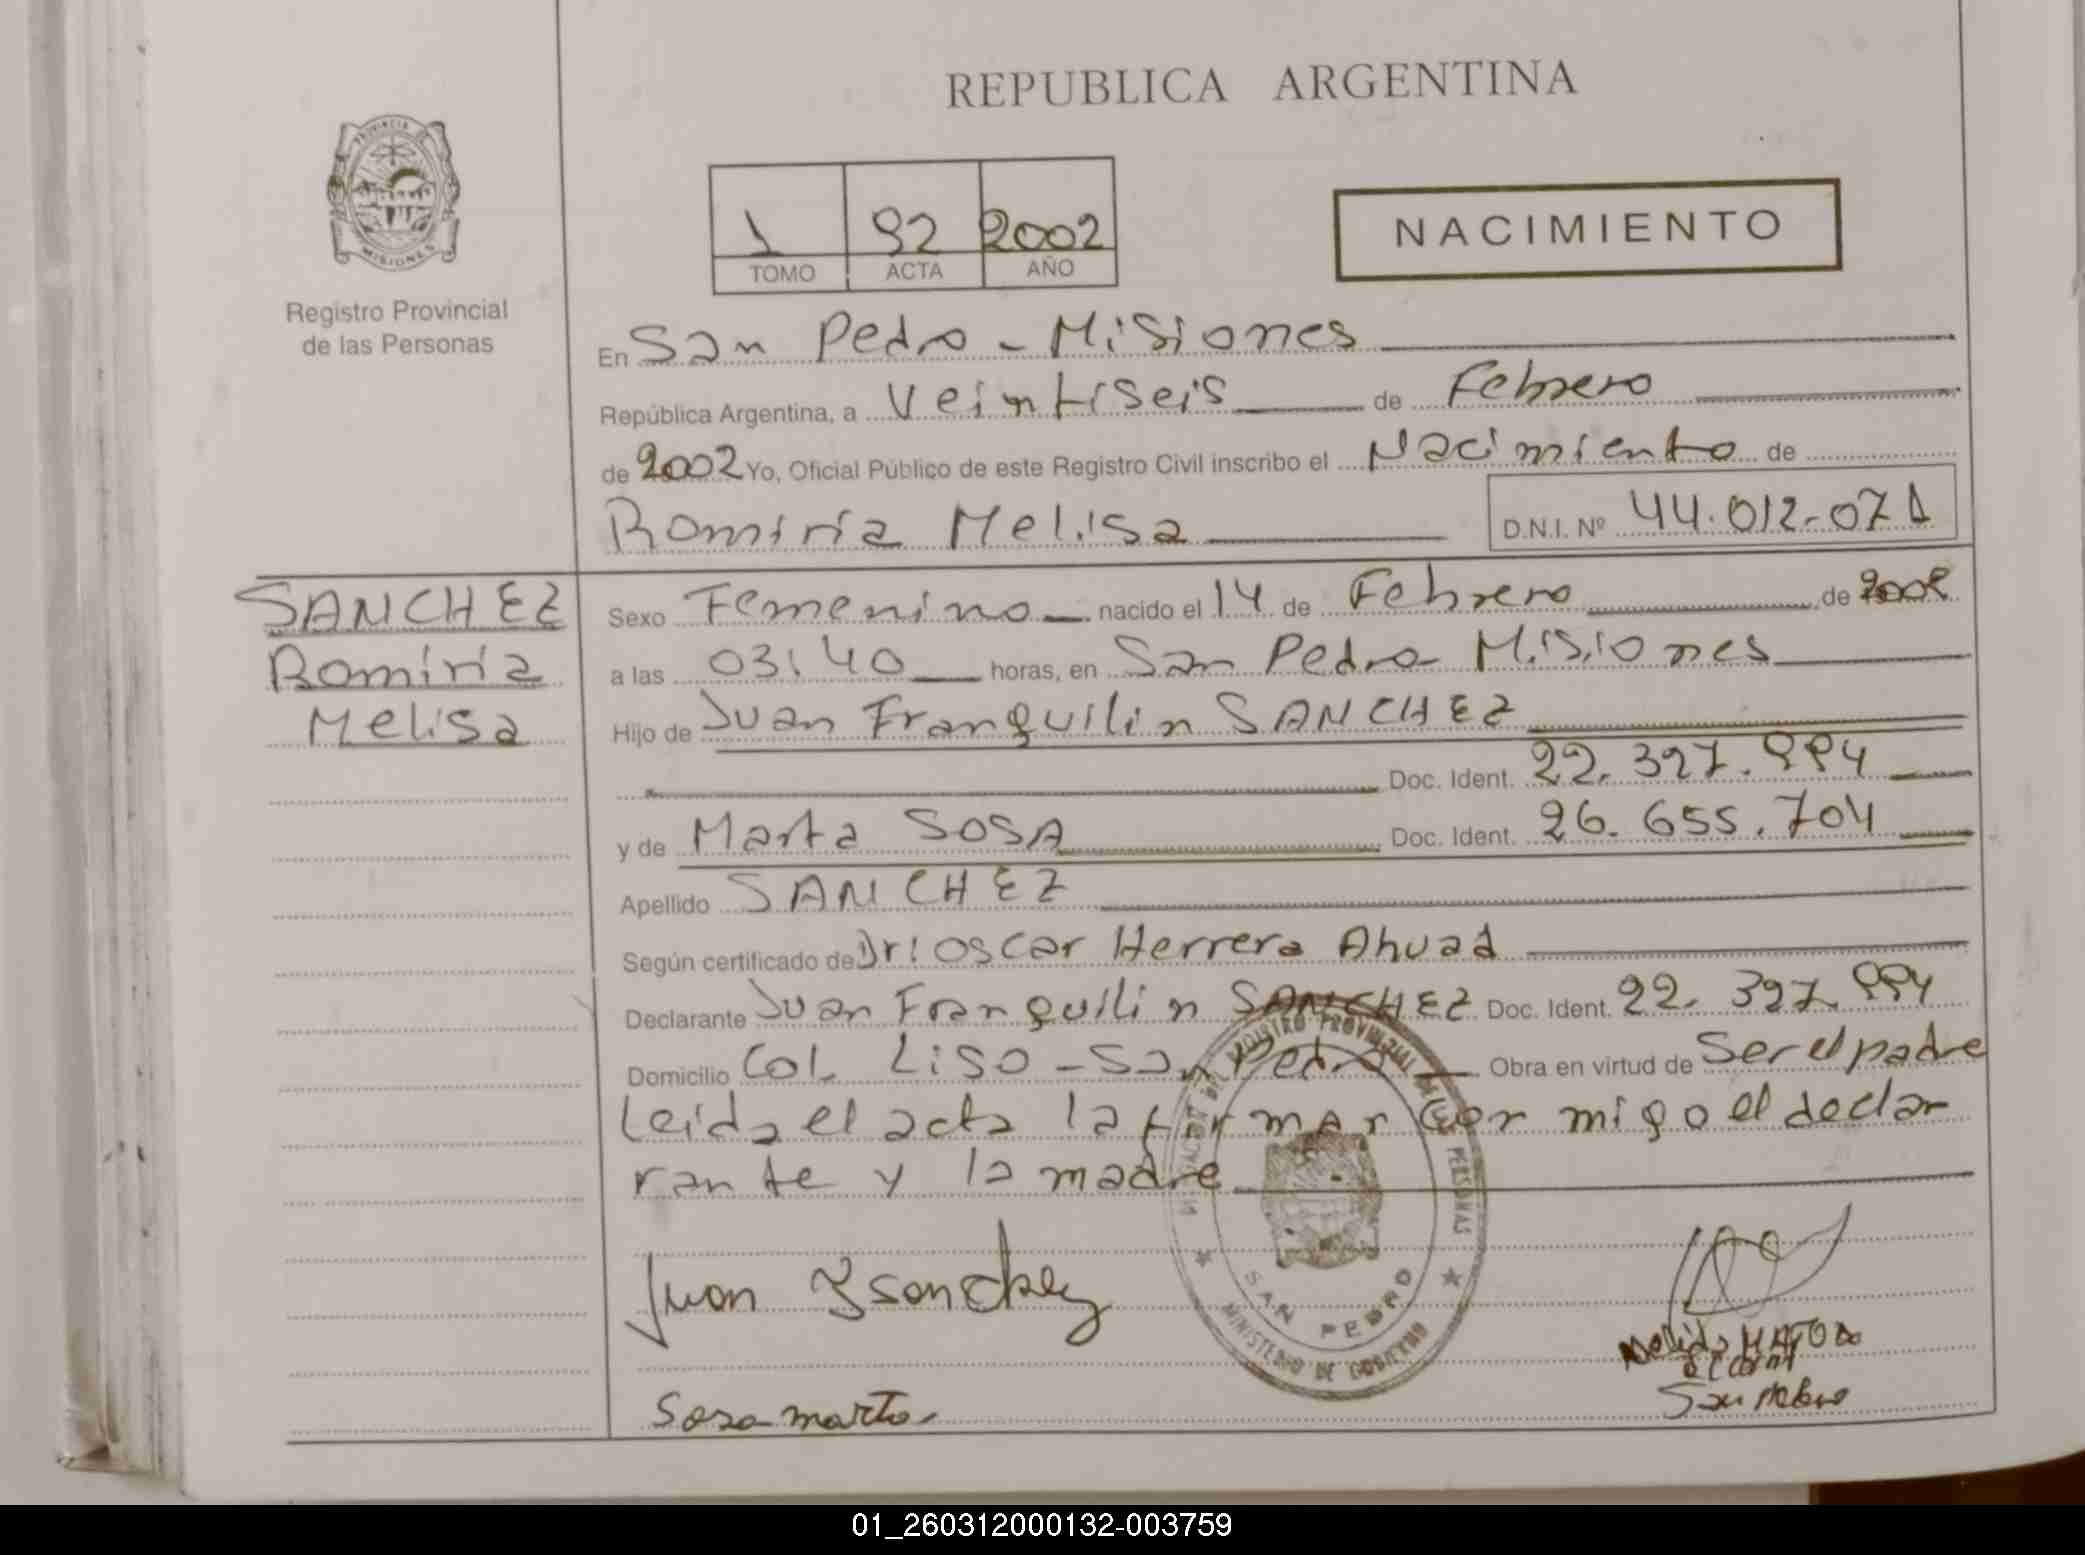 REPUBLICA ARGENTINA
PROVINCIA DE
MISIONES
Registro Provincial
de las Personas
1 92 2002
TOMO ACTA AÑO
NACIMIENTO
En San Pedro - Misiones
República Argentina, a Veintiseis de Febrero
de 2002 Yo, Oficial Público de este Registro Civil inscribo el Nacimiento de
Romiria Melisa D.N.I. Nº 44.012-071
SANCHEZ
Romiria
Melisa
Sexo Femenino nacido el 14 de Febrero de 2002
a las 03:40 horas, en San Pedro Misiones
Hijo de Juan Franquilin SANCHEZ
Doc. Ident. 22.327.994
y de Marta SOSA Doc. Ident. 26.655.704
Apellido SANCHEZ
Según certificado de Dr: Oscar Herrera Ahuad
Declarante Juan Franquilin SANCHEZ Doc. Ident. 22.327.994
Domicilio Col. Liso - San Pedro Obra en virtud de Ser el padre
Leida el acta la firman conmigo el decla
rante y la madre
REGISTRO PROVINCIAL DE LAS PERSONAS
SAN PEDRO
MINISTERIO DE GOBIERNO
Juan F Sanchez
Sosa marta
San Pedro
01_260312000132-003759